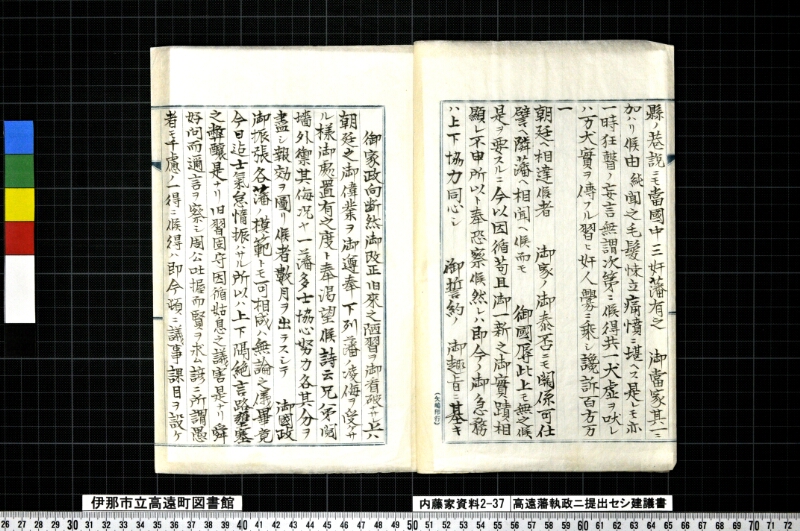 縣ノ巷説ニモ當國中三奸藩有之　御當家其一ニ
加ハリ候由純聞之毛髪悚立痛憤ニ堪ヘス是トモ亦
一時狂聲ノ妄言無謂次第ニ候得共一犬虚ヲ吠レ
ハ万犬實ヲ傳フル習ヒ奸人釁ニ乗シ讒訴百方万
一
朝廷ヘ相達候者　御家ノ御泰否ニモ關係可仕
譬ヘ隣藩ヘ相聞ヘ候而モ　御國辱此上モ無之候
是ヲ要スルニ今以因循苟且御一新之御實蹟相
顕レ不申所以ト奉恐察候然レハ即今ノ御急務
ハ上下協力同心シ　御誓約ノ　御趣旨ニ基キ
御家政向断然御改正旧来之陋習ヲ御看破サ上ハ
朝廷之御偉業ヲ御遵奉下列藩ノ凌侮ヲ受サ
ル様御處置有之度ト奉渇望候詩云兄弟鬩
墻外禦其侮況ヤ一藩多士協心努力各其分ヲ
盡シ報効ヲ圖リ候者數月ヲ出テスシテ　御國政
御振張各藩ノ模範トモ可相成ハ無論之儀畢竟
今日迄士氣怠惰振ハサル所以ハ上下隔絶言路壅塞
之弊釀是ナリ旧習固守因循姑息之議害是ナリ舜
好問而邇言ヲ察シ周公吐握而賢ヲ求ム諺ニ所謂愚
者モ千慮ノ一得ニ候得ハ即今頻ニ議事課目ヲ設ケ
伊那市立高遠町図書館
内藤家資料2-37　高遠藩執政ニ提出セシ建議書